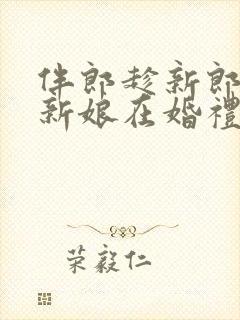 伴郎趁新郎
新娘在婚禮
荣毅仁